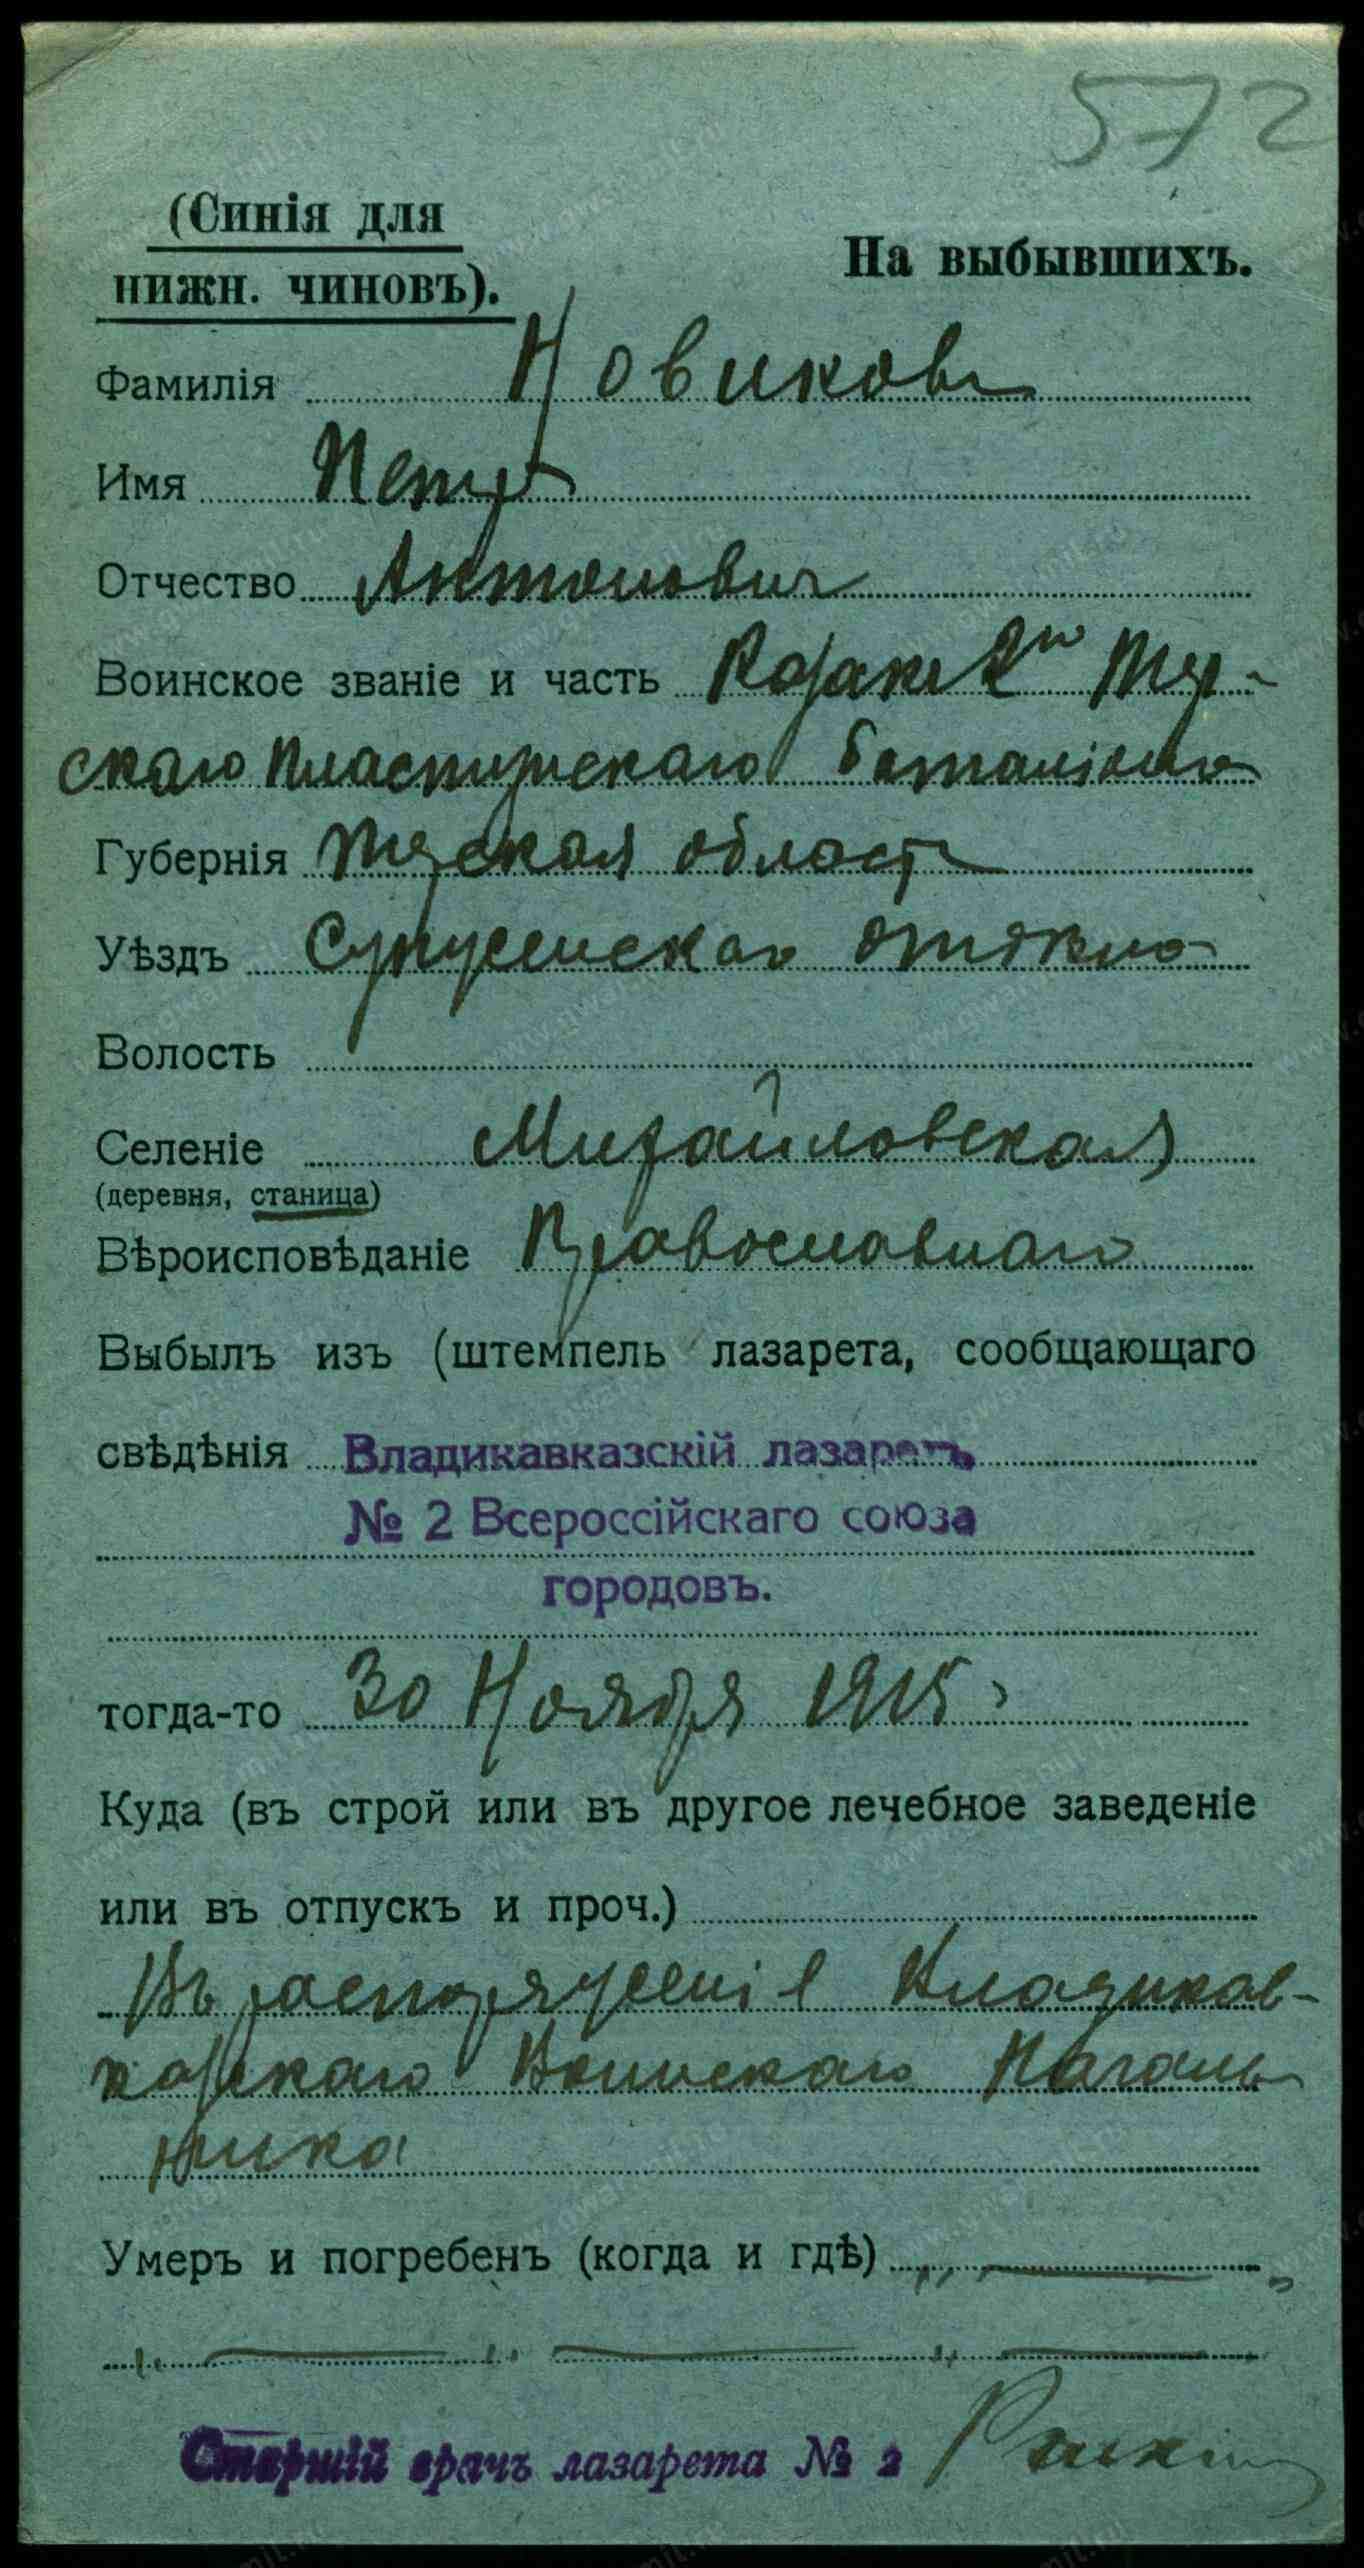 572
(Синія для
нижн. чиновъ).
На выбывшихъ.
Фамилія Новиковъ
Имя Петръ
Отчество Антоновичъ
Воинское званіе и часть Козакъ 2го Тер-
скаго Пластунскаго баталіона
Губернія Терская область
Уѣздъ Сунженскаго отдѣла
Волость
Селеніе Михайловская
(деревня, станица)
Вѣроисповѣданіе Православнаго
Выбылъ изъ (штемпель лазарета, сообщающаго
свѣдѣнія Владикавказскій лазаретъ
№ 2 Всероссійскаго союза
городовъ.
тогда-то 30 Ноября 1915
Куда (въ строй или въ другое лечебное заведеніе
или въ отпускъ и проч.)
Въ распоряженіе Владикав-
казскаго Воинскаго Началь
ника
Умеръ и погребенъ (когда и гдѣ)
Старшій врачъ лазарета № 2